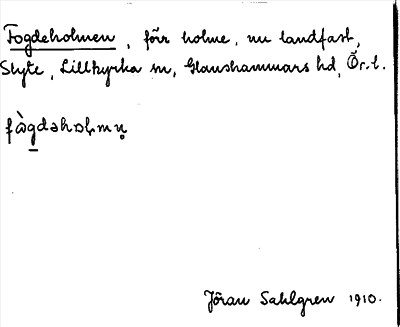 Fogdeholmen, förr holme, nu landfast,
Slyte, Lillkyrka sn, Glanshammars hd, Ör. l.
fògdəhoḷmṇ
Jöran Sahlgren 1910.